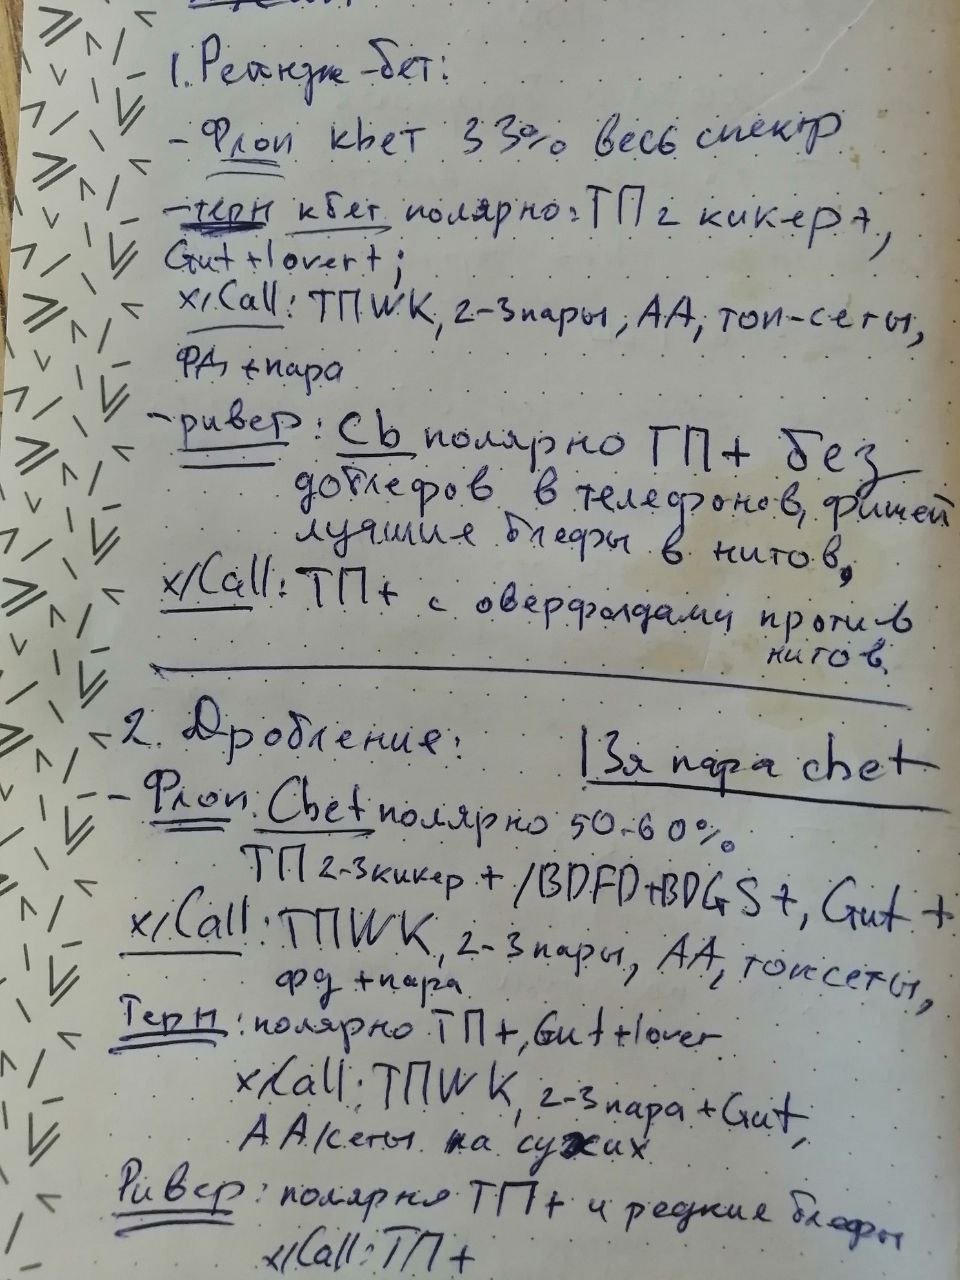 1. Рейндж-бет:
- Флоп кbет 33% весь спектр
- терн кбет полярно: ТП 2 кикер+,
Gut+1over+;
x/Call: ТПWK, 2-3 пары, АА, топ-сеты,
ФД+пара
- ривер: Cb полярно ТП+ без
доблефов в телефонов, фишей
лучшие блефы в нитов,
x/Call: ТП+ с оверфолдами против
нитов
2. Дробление:
| 3я пара cbet
- Флоп. Cbet полярно 50-60%
ТП 2-3 кикер+/BDFD+BDGS+, Gut+
x/Call: ТПWK, 2-3 пары, АА, топсеты,
фд+пара
Терн: полярно ТП+, Gut+1over
x/Call: ТПWK, 2-3 пара+Gut,
АА/сеты на сухих
Ривер: полярно ТП+ и редкие блефы
x/Call: ТП+